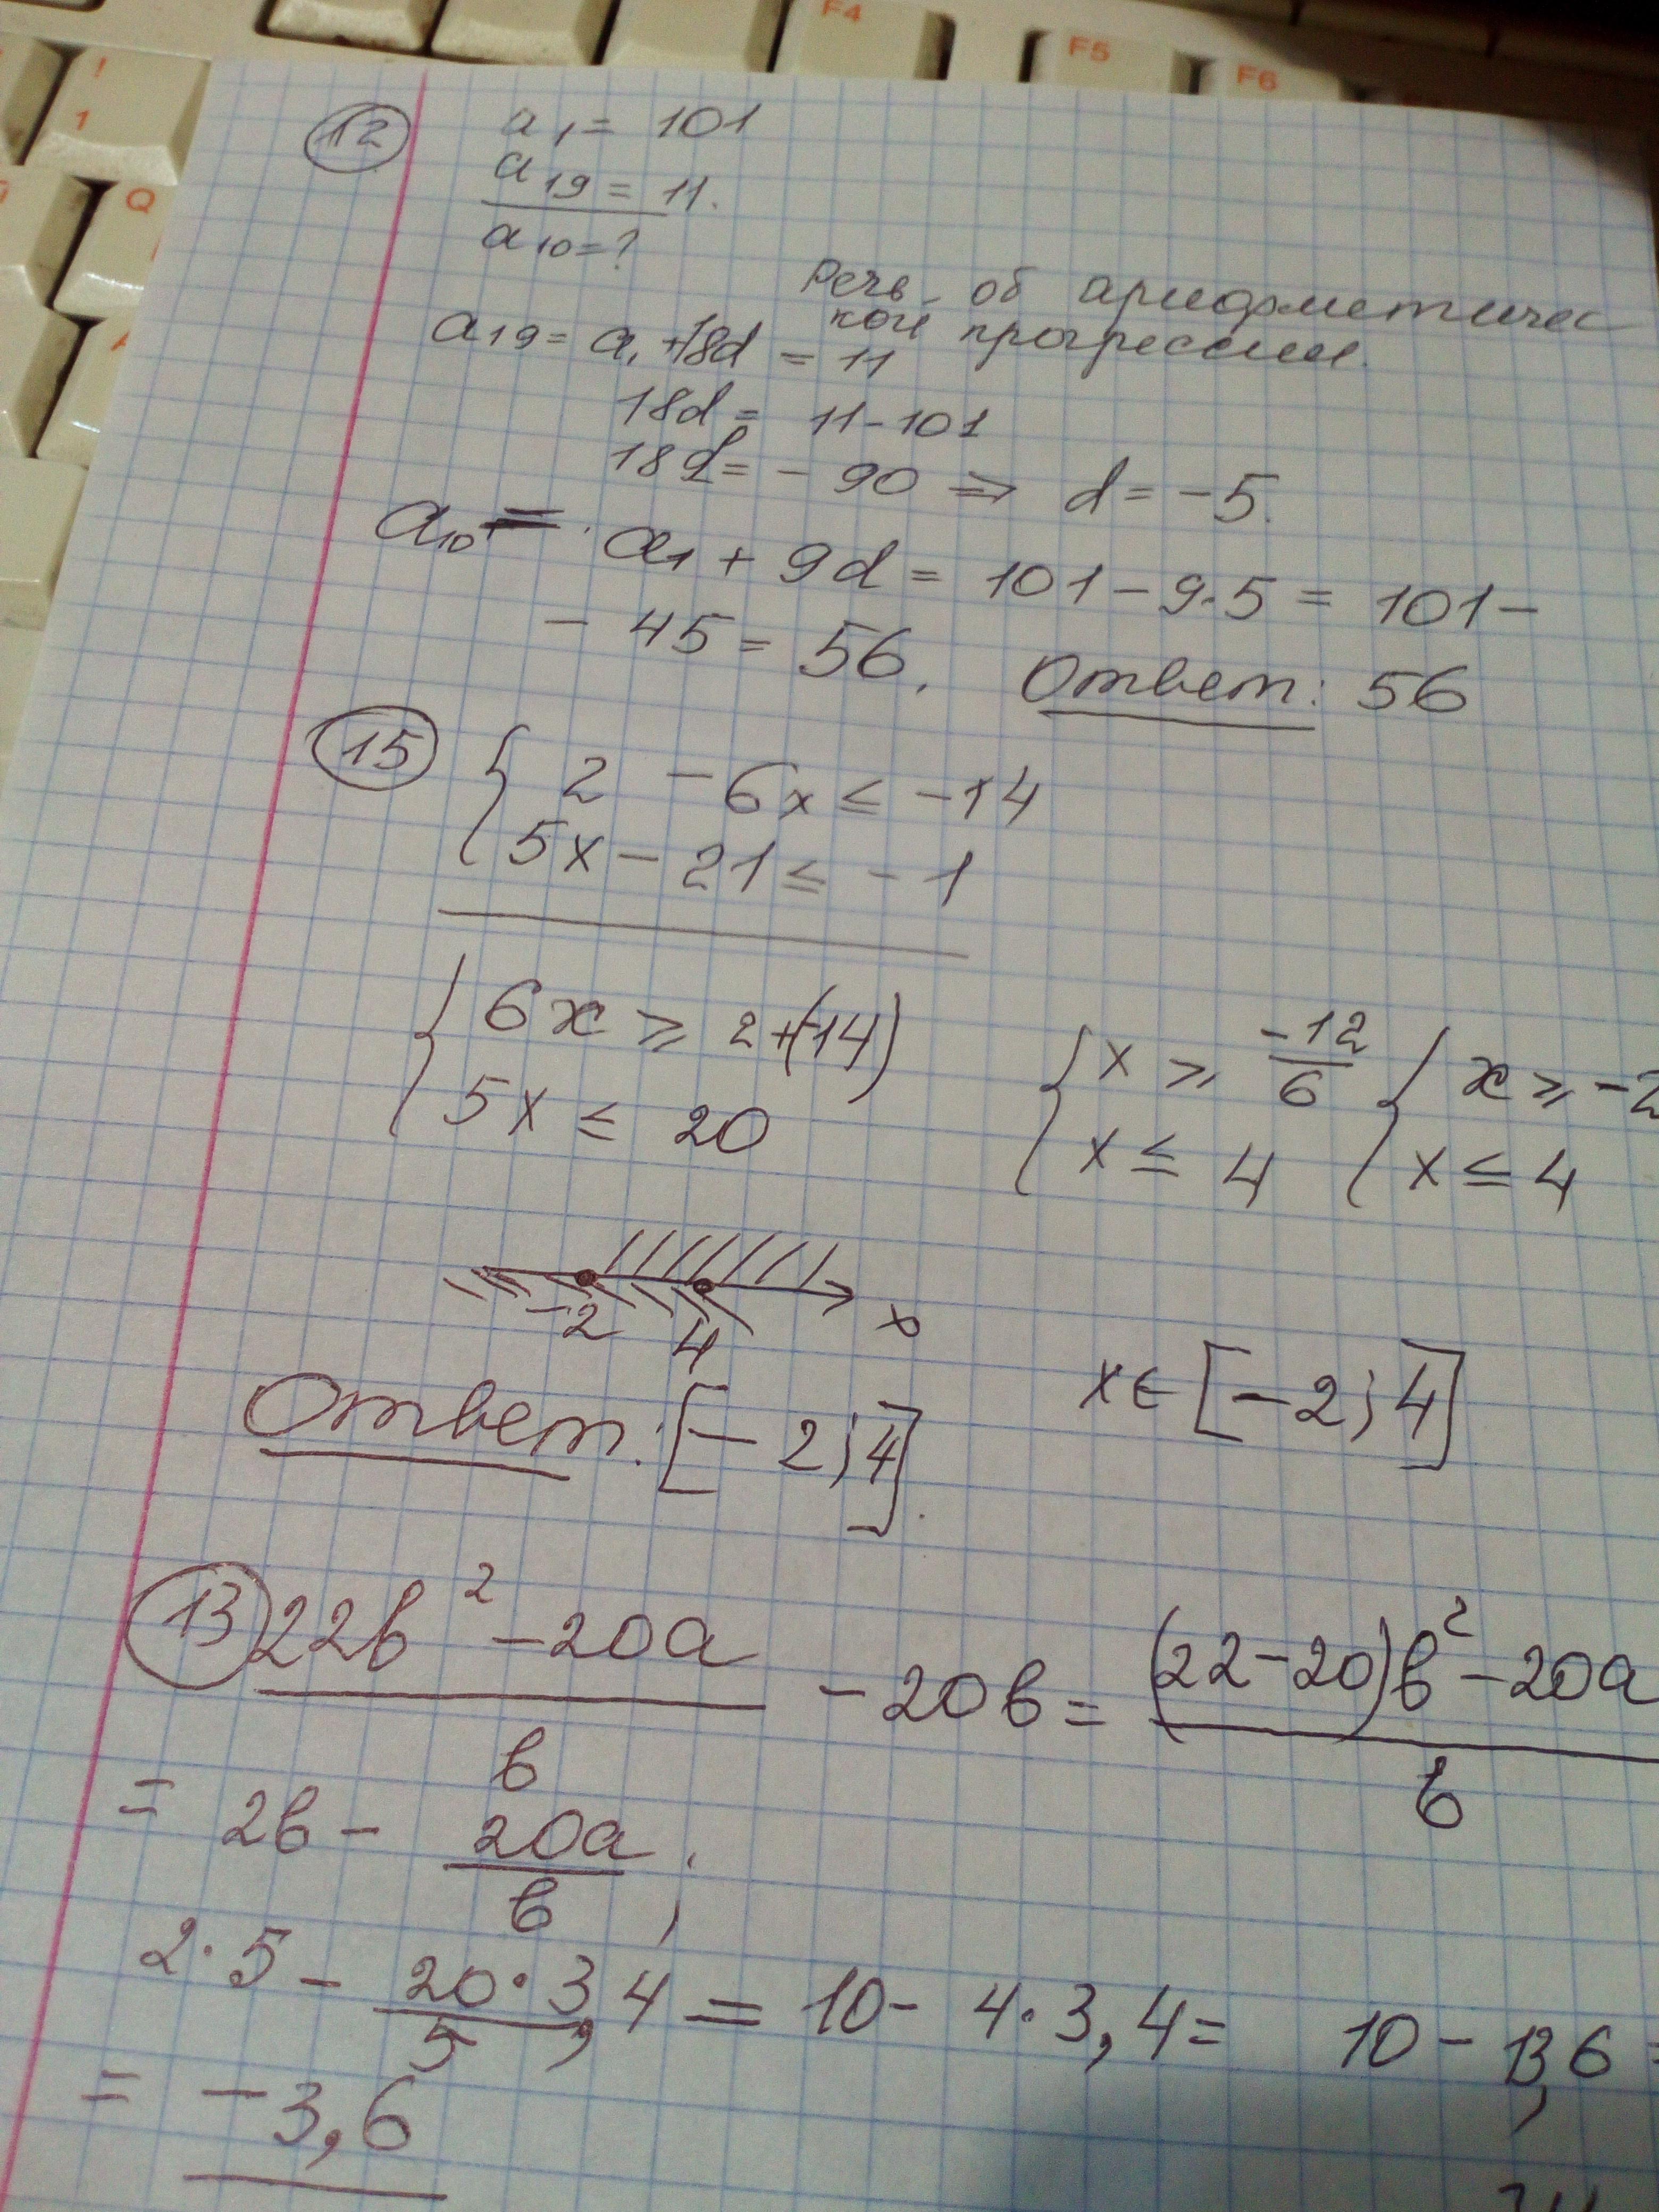 F4
F5
F6
!
1
Q
12
a₁ = 101
a₁₉ = 11.
a₁₀ = ?
Речь об арифметичес
кой прогрессии.
a₁₉ = a₁ + 18d = 11
18d = 11 - 101
18d = - 90 ⇒ d = -5.
a₁₀ = a₁ + 9d = 101 - 9·5 = 101 -
- 45 = 56. Ответ: 56
15
{ 2 - 6x ≤ -14
5x - 21 ≤ -1
{ 6x ≥ 2+(-14) { x ≥ -12/6 { x ≥ -2
5x ≤ 20 x ≤ 4 x ≤ 4
-2 4 x
x ∈ [-2; 4]
Ответ: [-2; 4].
13 (22b² - 20a)/b - 20b = ((22-20)b² - 20a)/b
= 2b - 20a/b ;
2·5 - (20·3,4)/5 = 10 - 4·3,4 = 10 - 13,6 =
= -3,6